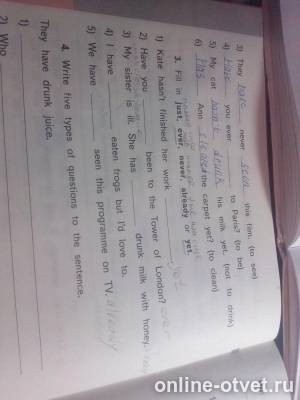 3) They have never seen this film. (to see)
4) Have you ever to Paris? (to be)
5) My cat drunk his milk yet. (not to drink)
6) Has Ann cleaned the carpet yet? (to clean)
3. Fill in just, ever, never, already or yet.
1) Kate hasn't finished her work yet
2) Have you been to the Tower of London? ever
3) My sister is ill. She has drunk milk with honey.
4) I have eaten frogs but I'd love to.
5) We have seen this programme on TV.
4. Write five types of questions to the sentence.
They have drunk juice.
1)
2) Who
online-otvet.ru